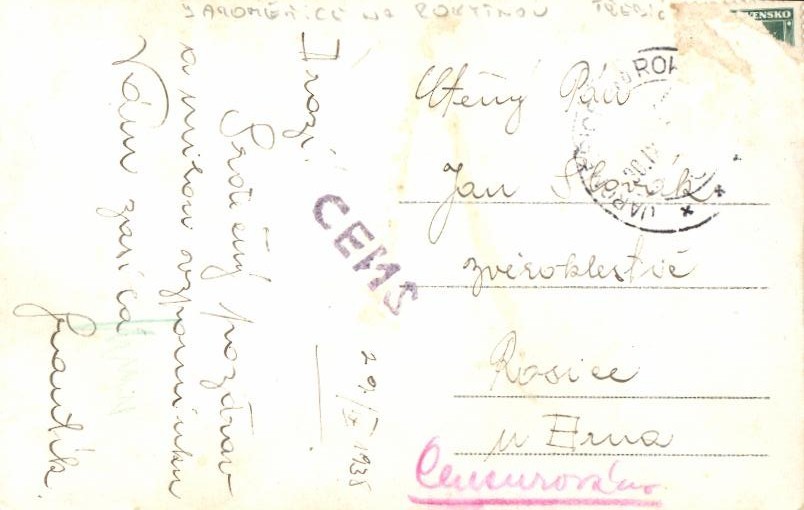 JAROMĚŘICE NA ROKYTNOU TŘEBÍČ
VENSKO
Drazí!
Srdečný pozdrav
a milou vzpomínku
Vám zasílá
Frantík.
29./IX 1938
CENS
ROK
JARO
Ctěný Pán
Jan Slovák
zvěroklestič
Rosice
u Brna
Censurováno